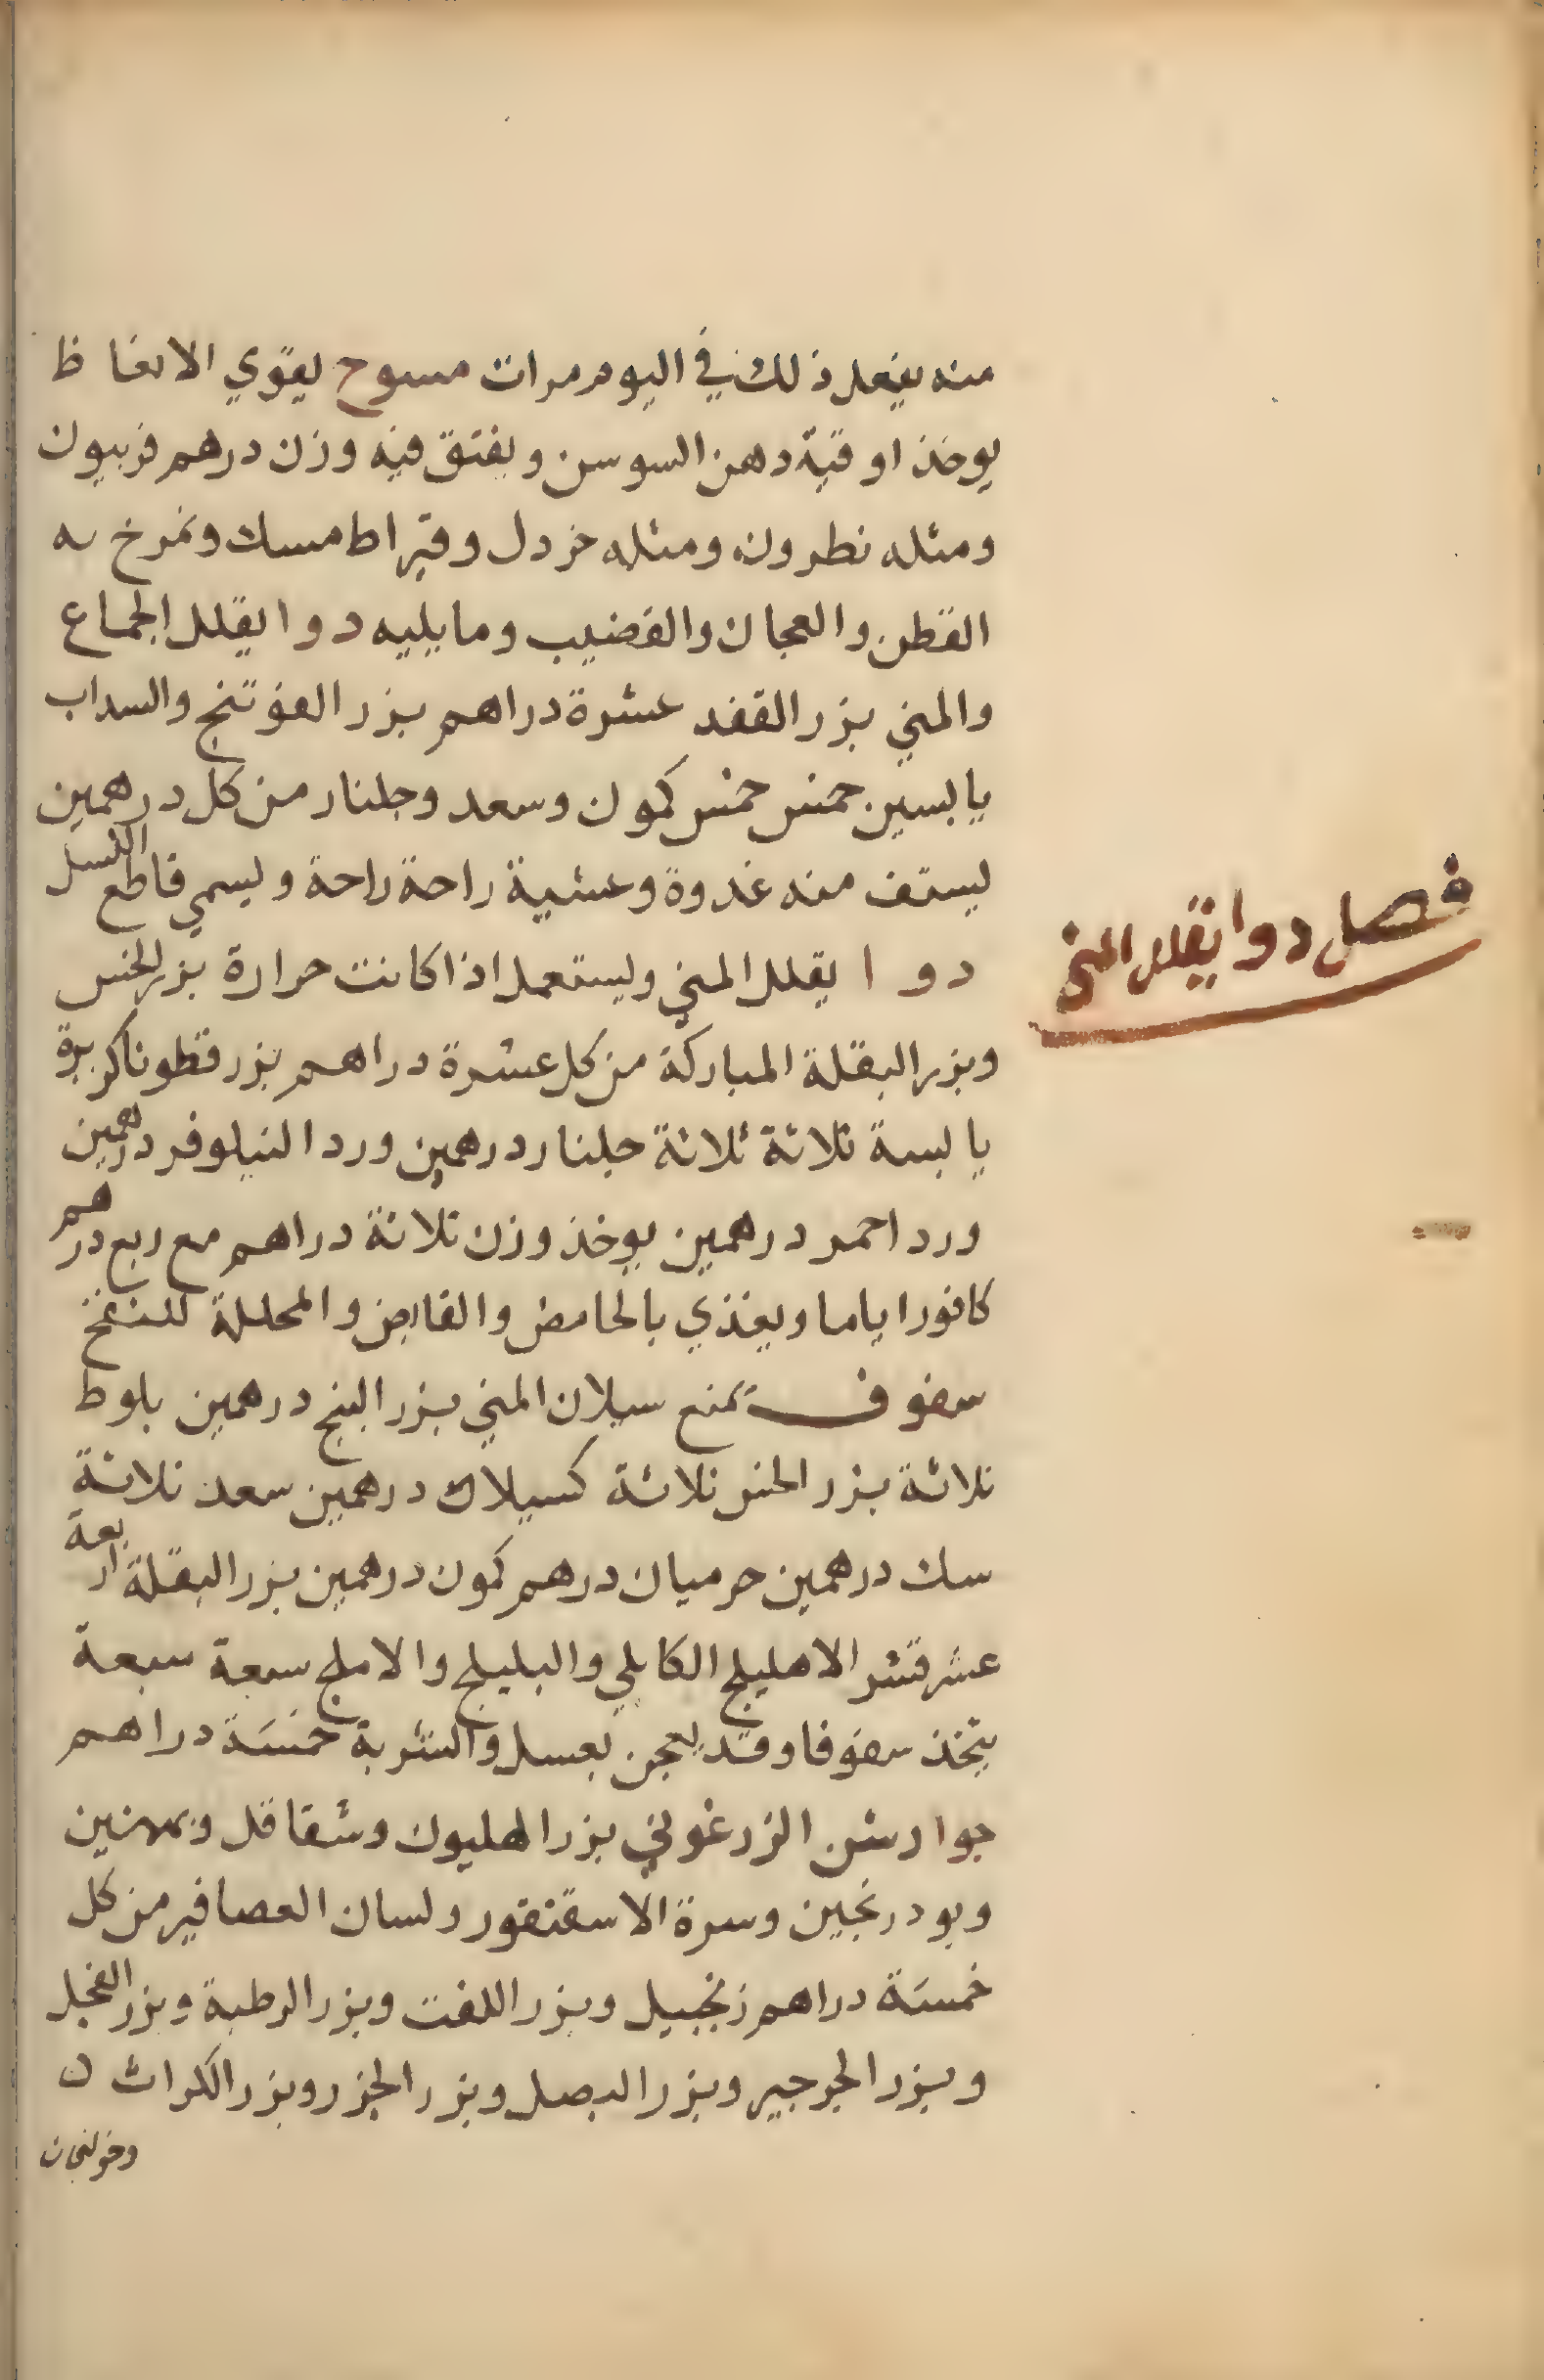 منه يفعل ذلك في اليوم مرات مسوح يقوي الانعاظ
يوخذ اوقية دهن السوسن ويفتق فيه وزن درهم فربيون
ومثله نطرون ومثله خردل وقيراط مسك وتمرخ به
القطن والعجان والقضيب وما يليه دوا يقلل الجماع
والمني بزر الفقد عشرة دراهم بزر الفوتنج والسداب
يابسين خمس خمس كمون وسعد وجلنار من كل درهمين
يستف منه غدوة وعشية راحة راحة ويسمي قاطع النسل
دوا يقلل المني ويستعمل اذا كانت حرارة بزر الخس
فصل دوا يقلل المني
وبزر البقلة المباركة من كل عشرة دراهم بزر قطونا كزبرة
يابسة ثلاثة ثلاثة جلنار درهمين ورد النيلوفر درهمين
ورد احمر درهمين يوخذ وزن ثلاثة دراهم مع ربع درهم
كافور اياما ويغذي بالحامض والقابض والمحللة للنفخ
سفوف يمنع سيلان المني بزر البنج درهمين بلوط
ثلاثة بزر الخس ثلاثة كسيلاك درهمين سعد ثلاثة
سك درهمين حرميان درهم كمون درهمين بزر البقلة اربعة
عشر قشر الاهليلج الكابلي والبليلج والاملج سبعة سبعة
يتخذ سفوفا وقد يعجن بعسل والشربة خمسة دراهم
جوارشن الزرعوني بزر الهليون وشقاقل وبهمنين
وبودرنجين وسرة الاسقنقور ولسان العصافير من كل
خمسة دراهم زنجبيل وبزر اللفت وبزر الرطبة وبزر الفجل
وبزر الجرجير وبزر البصل وبزر الجزر وبزر الكراث ن
وخولنجان